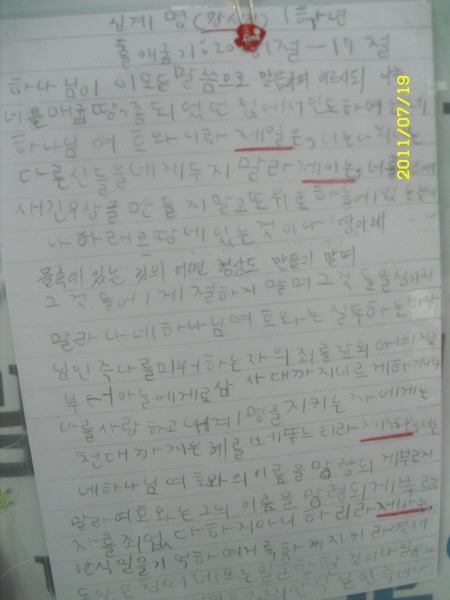 십계명 (왕시지) 1학년
출애굽기:20 1절-17절
하나님이 이모든말씀으로 말씀하여 이르시되 나는
너를애굽땅,종되었던 집에서인도하여
하나님 여호와니라 제일은, 너는나외에는
다른신들을네게두지 말라 제이는, 너를
새긴우상을 만들지말고또위로하늘에있는것이
나 아래로땅에있는것이나 땅아래
물속에있는 것의 어떤 형상도 만들지 말며
그것들에게절하지말며그것들을섬기지
말라 나네하나님여호와는질투하는하나
님인즉나를미워하는자의죄를갚되 아비
부터아들에게로삼 사대까지이르게하거니와
나를사랑하고내계명을지키는자에게는
천대까지은혜를베푸느리라제삼은,너는
네하나님 여호와의이름을망령되게부르지
말라여호와는그의이름을망령되게부르는
자를죄없다하지아니하리라제사는,
안식일을기억하여거룩하게지키라엿새